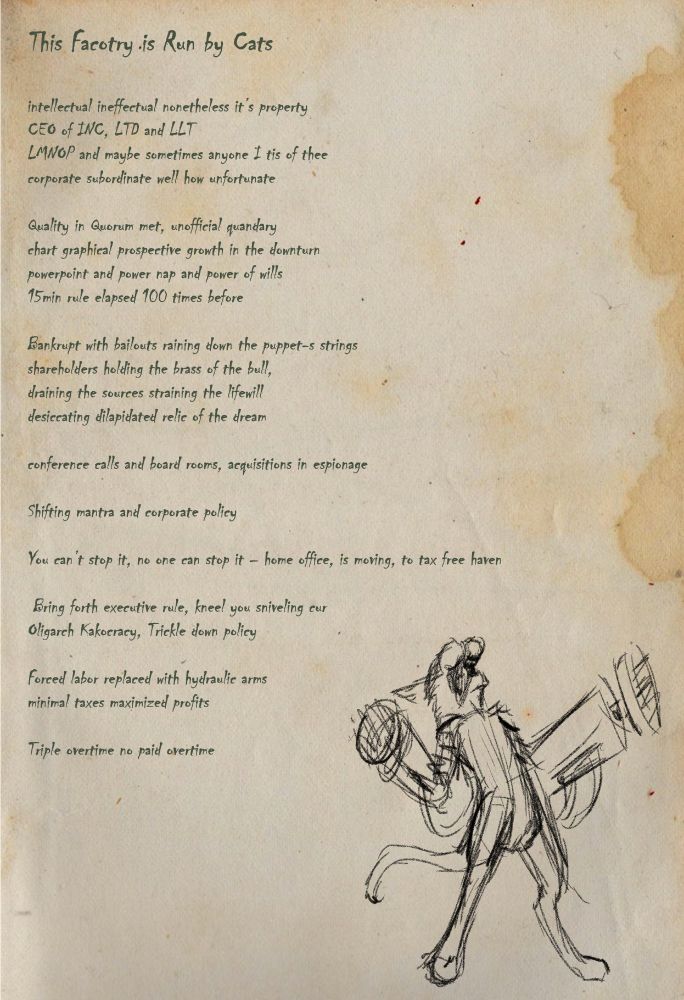 This Facotry .is Run by Cats
intellectual ineffectual nonetheless it's property
CEO of INC, LTD and LLT
LMNOP and maybe sometimes anyone I tis of thee
corporate subordinate well how unfortunate
Quality in Quorum met, unofficial quandary
chart graphical prospective growth in the downturn
powerpoint and power nap and power of wills
15min rule elapsed 100 times before
Bankrupt with bailouts raining down the puppet-s strings
shareholders holding the brass of the bull,
draining the sources straining the lifewill
desiccating dilapidated relic of the dream
conference calls and board rooms, acquisitions in espionage
Shifting mantra and corporate policy
You can't stop it, no one can stop it – home office, is moving, to tax free haven
Bring forth executive rule, kneel you sniveling cur
Oligarch Kakocracy, Trickle down policy
Forced labor replaced with hydraulic arms
minimal taxes maximized profits
Triple overtime no paid overtime